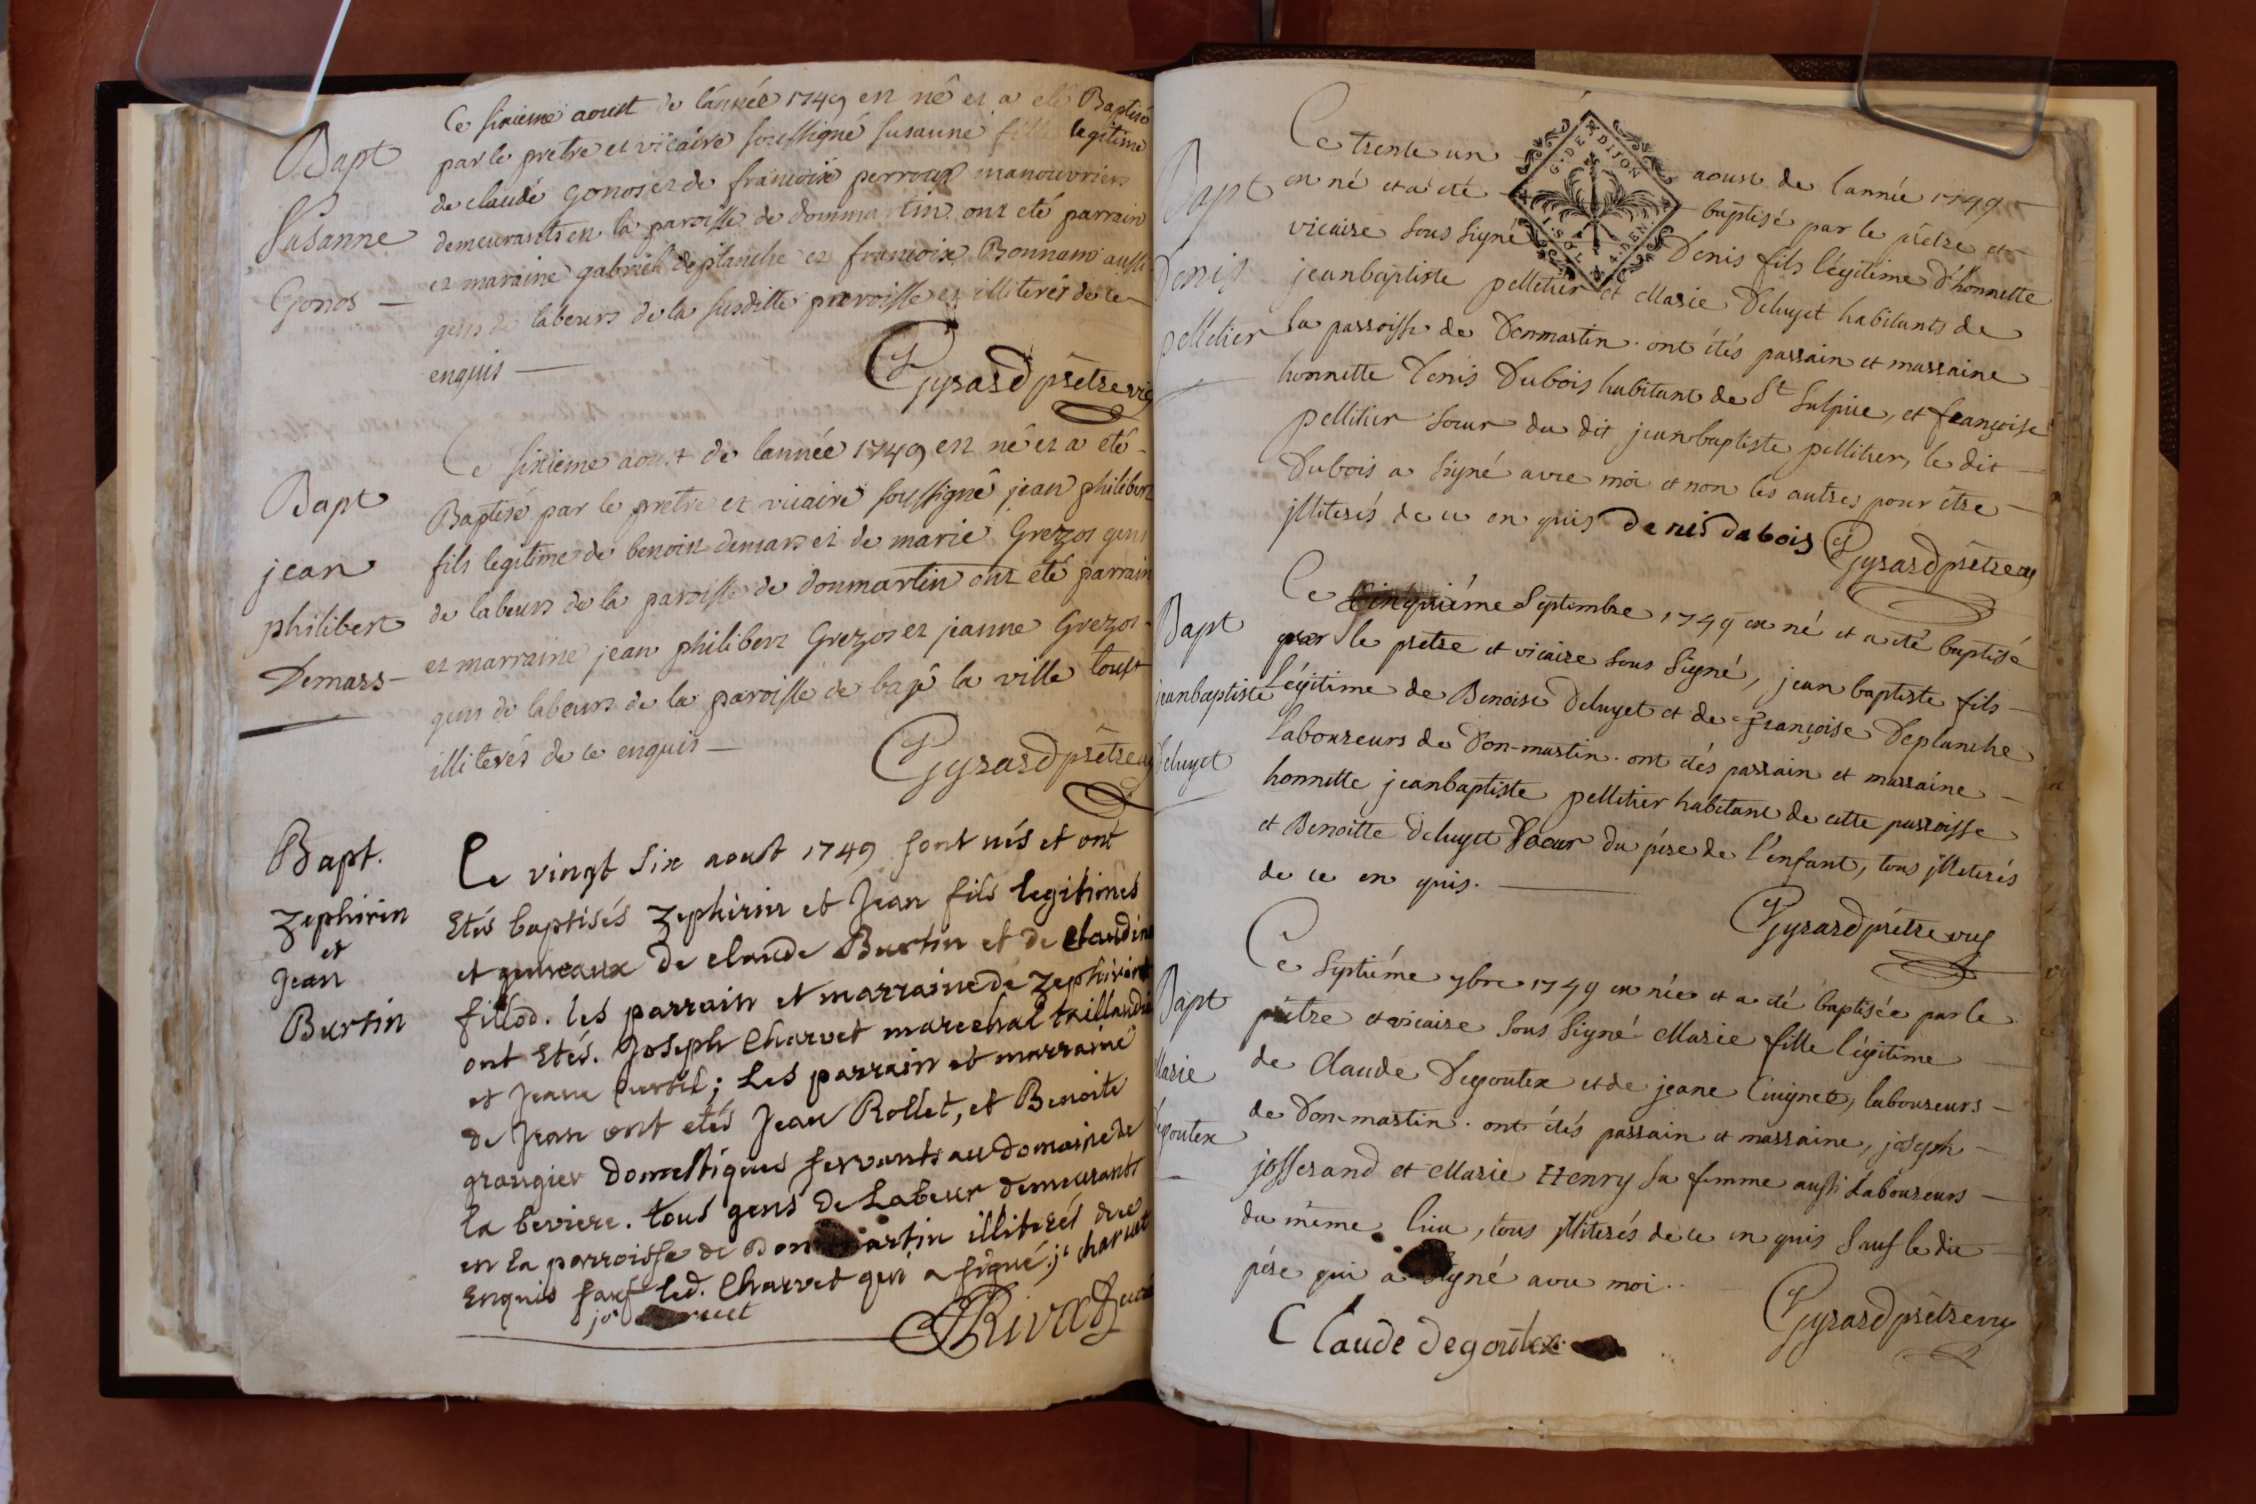 Bapt
Susanne
Gonos
Ce sixieme aoust de l'année 1749 est né et a eté Baptisé
par le pretre et vicaire soussigné susanne fille legitime
de claude gonos et de francoise perroux manouvriers
demeurants en la paroisse de dommartin ont eté parrain
et maraine gabriel deplanche et francoise Bonnam aussi
gens de labeurs de la susditte paroisse et illiterés de ce
enquis
Gyrard prêtre vic
Bapt
jean
philibert
Demars
Ce sixieme aoust de l'année 1749 est né et a eté
Baptisé par le pretre et vicaire soussigné jean philibert
fils legitime de benoit demars et de marie Grezos gens
de labeurs de la paroisse de donmartin ont eté parrain
et marraine jean philibert Grezos et jeanne Grezos
gens de labeurs de la paroisse de bagé la ville tous
illiterés de ce enquis
Gyrard prêtre
Bapt.
Zephirin
et
Jean
Burtin
Le vingt six aoust 1749 sont nés et ont
Etés baptisés Zephirin et Jean fils legitimes
et gemeaux de claude Burtin et de claudine
fillod. les parrain et marraine de Zephirin
ont Etés. Joseph Charvet marechal taillandier
et Jeane Curtil; Les parrain et marraine
de Jean ont etés Jean Rollet, et Benoite
grangier Domestiques servants au domaine de
la beviere. tous gens de Labeur demeurants
en la parroisse de Donmartin illiterés de ce
Enquis sauf led. Charvet qui a signé; jo charvet
Rivat curé
Bapt
Denis
pelletier
Ce trente un aoust de l'année 1749
G. DE DIJON
est né et a eté baptisé par le prêtre et
vicaire sous signé Denis fils légitime d'honnette
jeanbaptiste pelletier et Marie Deluyet habitants de
la parroisse de Donmartin. ont étés parrain et marraine
honnette Denis Dubois habitant de St Sulpice, et françoise
pelletier soeur du dit jeanbaptiste pelletier, le dit
Dubois a signé avec moi et non les autres pour être
jlliterés de ce en quis denis dabois
Gyrard prêtre
Bapt
jeanbaptiste
Deluyet
Ce Cinquiéme Septembre 1749 est né et a eté baptisé
par le pretre et vicaire sous signé, jean baptiste fils
Légitime de Benoist Deluyet et de françoise Deplanche
Laboureurs de Don-martin. ont étés parrain et marraine
honnette jeanbaptiste pelletier habitant de cette parroisse
et Benoitte Deluyet Soeur du pére de l'enfant, tous jlleterés
de ce en quis.
Gyrard prêtre vic
Bapt
Marie
Degoutex
Ce Septiéme 7bre 1749 est née et a eté baptisée par le
prêtre et vicaire sous signé Marie fille légitime
de Claude Degoutex et de jeane Cuignet, laboureurs
de Don-martin. ont étés parrain et marraine, joseph
josserand et Marie Henry sa femme aussi Laboureurs
du même lieu, tous jlliterés de ce en quis sauf le dit
pére qui a signé avec moi..
Claude degoutex
Gyrard prêtre vic